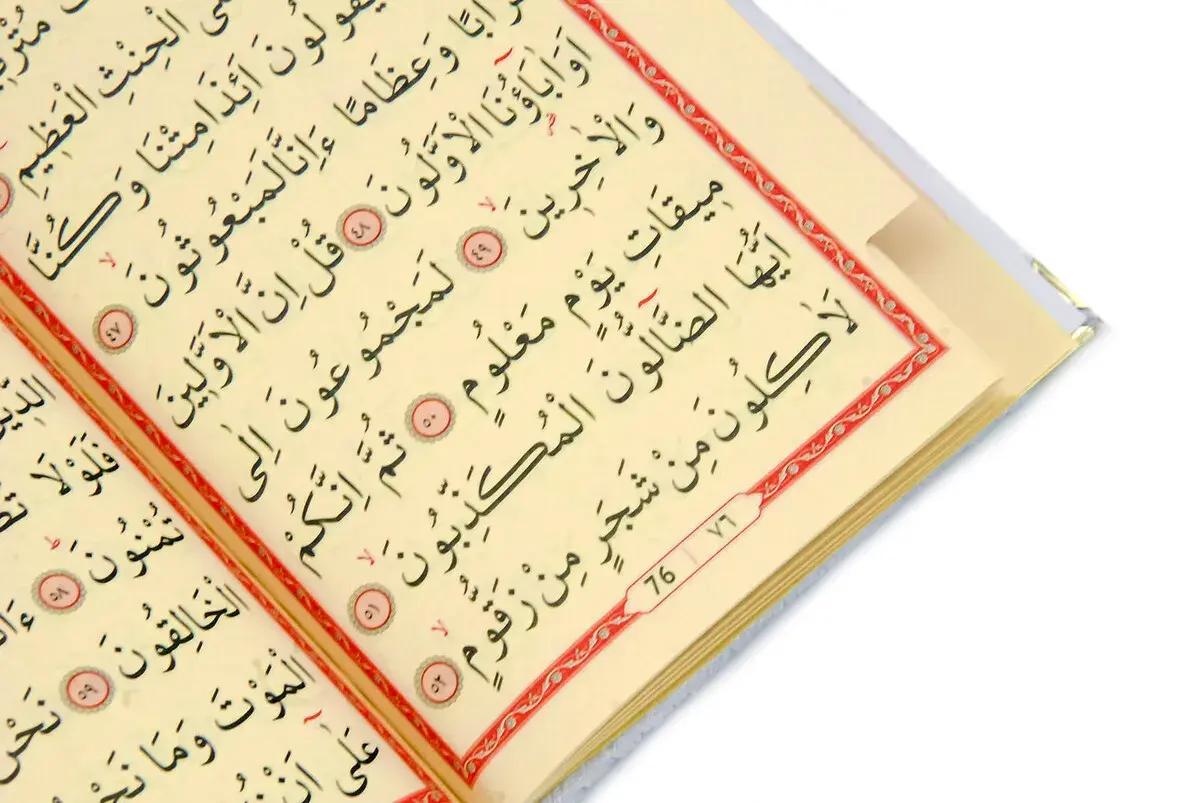 الْحِنْثِ الْعَظِيمِ
يَقُولُونَ اَئِذَا مِتْنَا وَكُنَّا
وَعِظَامًا ءَاِنَّا لَمَبْعُوثُونَ ٤٧
اَوَاٰبَٓاؤُ۬نَا الْاَوَّلُونَ ٤٨ قُلْ اِنَّ الْاَوَّلِينَ
وَالْاٰخِرِينَ ٤٩ لَمَجْمُوعُونَ اِلٰى
مِيقَاتِ يَوْمٍ مَعْلُومٍ ٥٠ ثُمَّ اِنَّكُمْ
اَيُّهَا الضَّٓالُّونَ الْمُكَذِّبُونَ ٥١
لَاٰكِلُونَ مِنْ شَجَرٍ مِنْ زَقُّومٍ ٥٢
76 | ٧٦
فَلَوْلَا
تُمْنُونَ ٥٨
الْخَالِقُونَ ٥٩ نَحْنُ
الْمَوْتَ وَمَا نَحْنُ
عَلٰٓى اَنْ